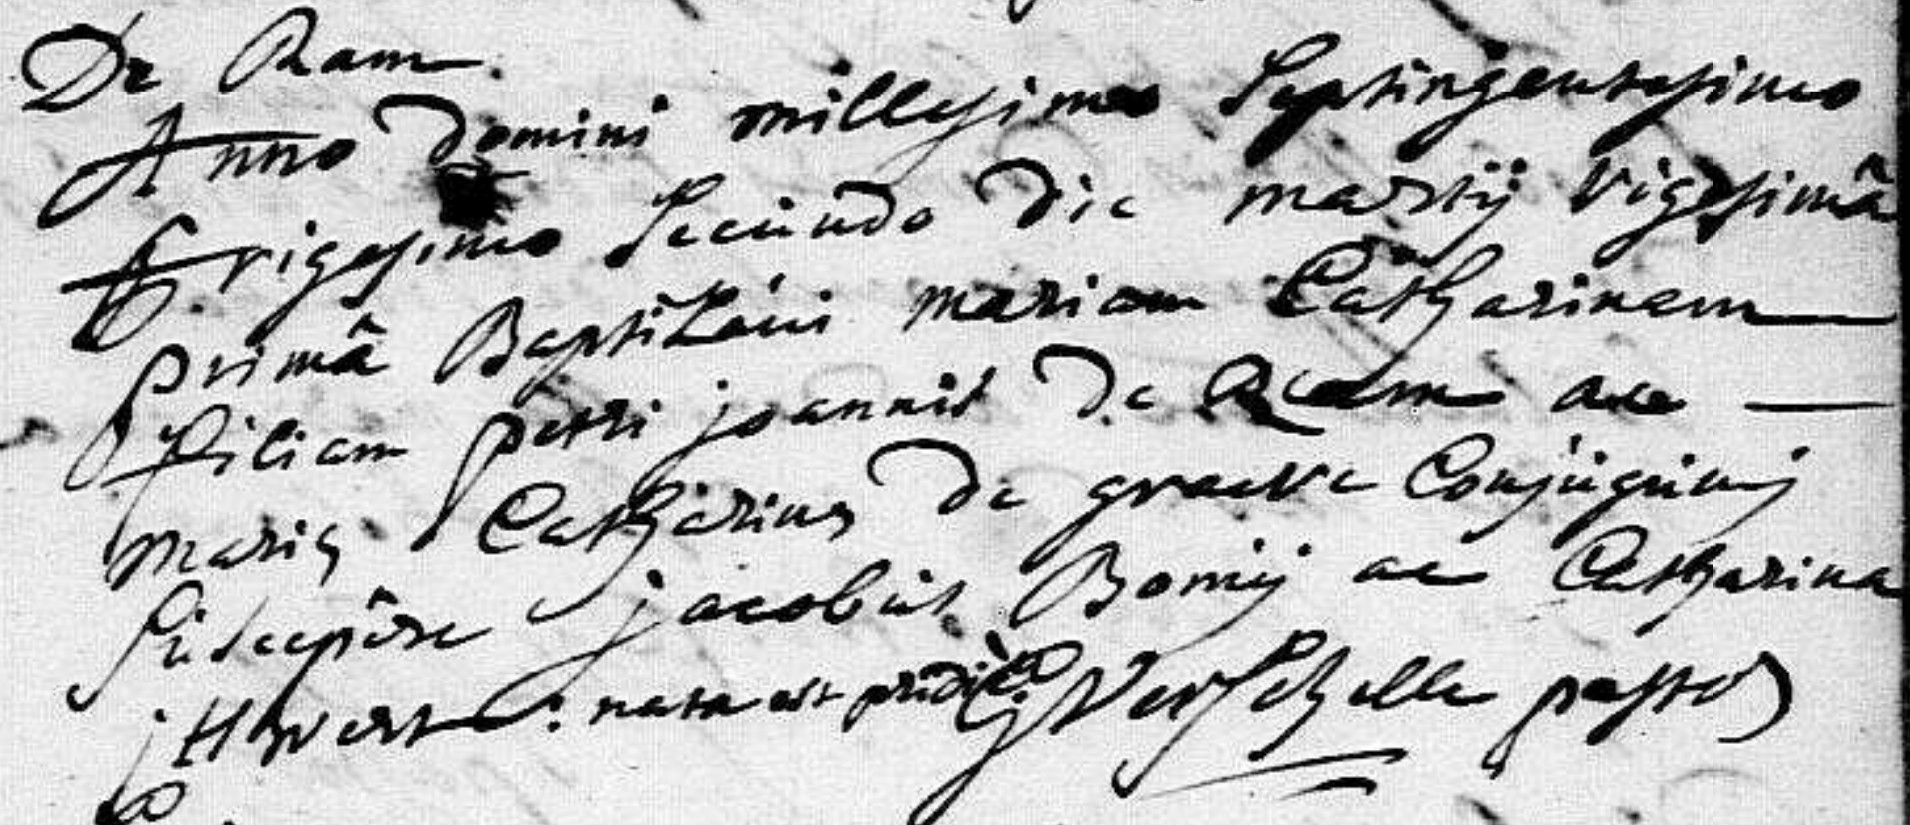 De Ram.
Anno Domini millesimo Septingentesimo
trigesimo Secundo die martij vigesimâ
primâ Baptizavi mariam Catharinam
filiam petri joannis De Ram ac
mariæ Catharinæ de graeve Conjugum;
suscepêre jacobus Bonnij ac Catharina
: nata est pridiè G Verschelle pastor